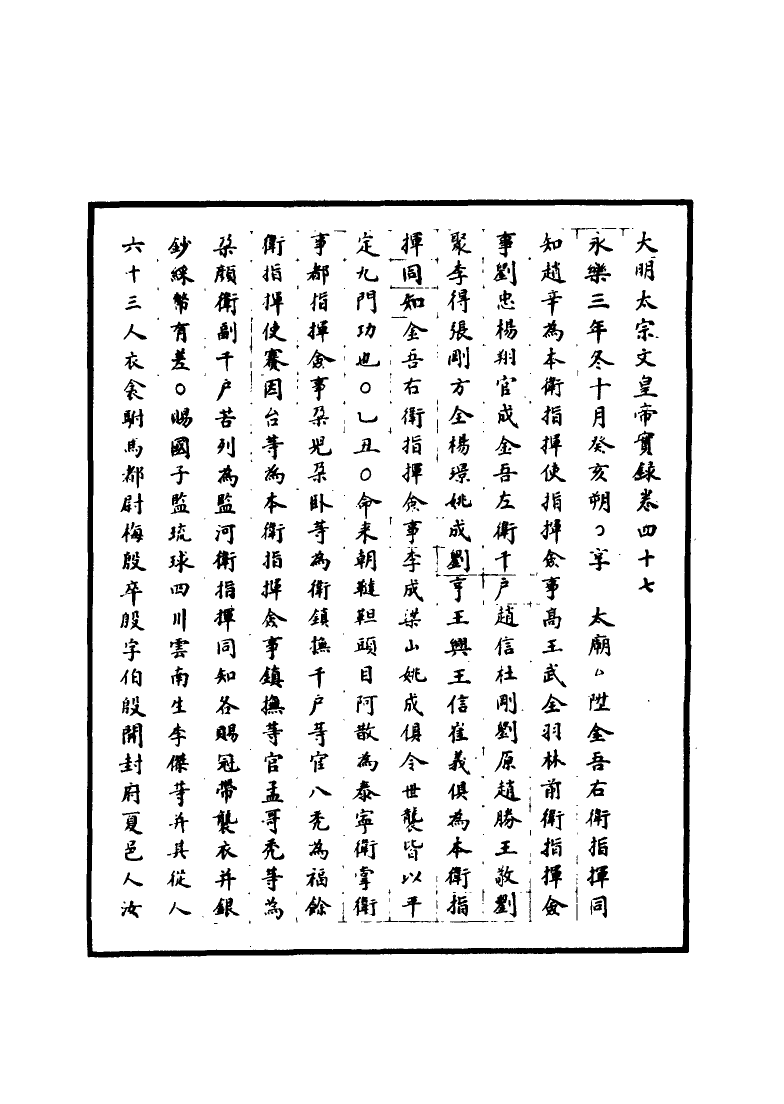 大明太宗文皇帝實錄卷四十七
永樂三年冬十月癸亥朔○享　太廟○陞金吾右衛指揮同
知趙辛為本衛指揮使指揮僉事高王武全羽林前衛指揮僉
事劉忠楊翔官成金吾左衛千戶趙信杜剛劉原趙勝王敬劉
聚李得張剛方全楊璟姚成劉亨王興王信崔義俱為本衛指
揮同知金吾右衛指揮僉事李成梁山姚成俱令世襲皆以平
定九門功也○乙丑○命来朝韃靼頭目阿散為泰寧衛掌衛
事都指揮僉事朶兒朶卧等為衛鎮撫千戶等官八禿為福餘
衛指揮使賽因台等為本衛指揮僉事鎮撫等官孟哥禿等為
朶顔衛副千戶苦列為監河衛指揮同知各賜冠帶襲衣并銀
鈔綵幣有差○賜國子監琉球四川雲南生李傑等并其從人
六十三人衣衾駙馬都尉梅殷卒殷字伯殷開封府夏邑人汝